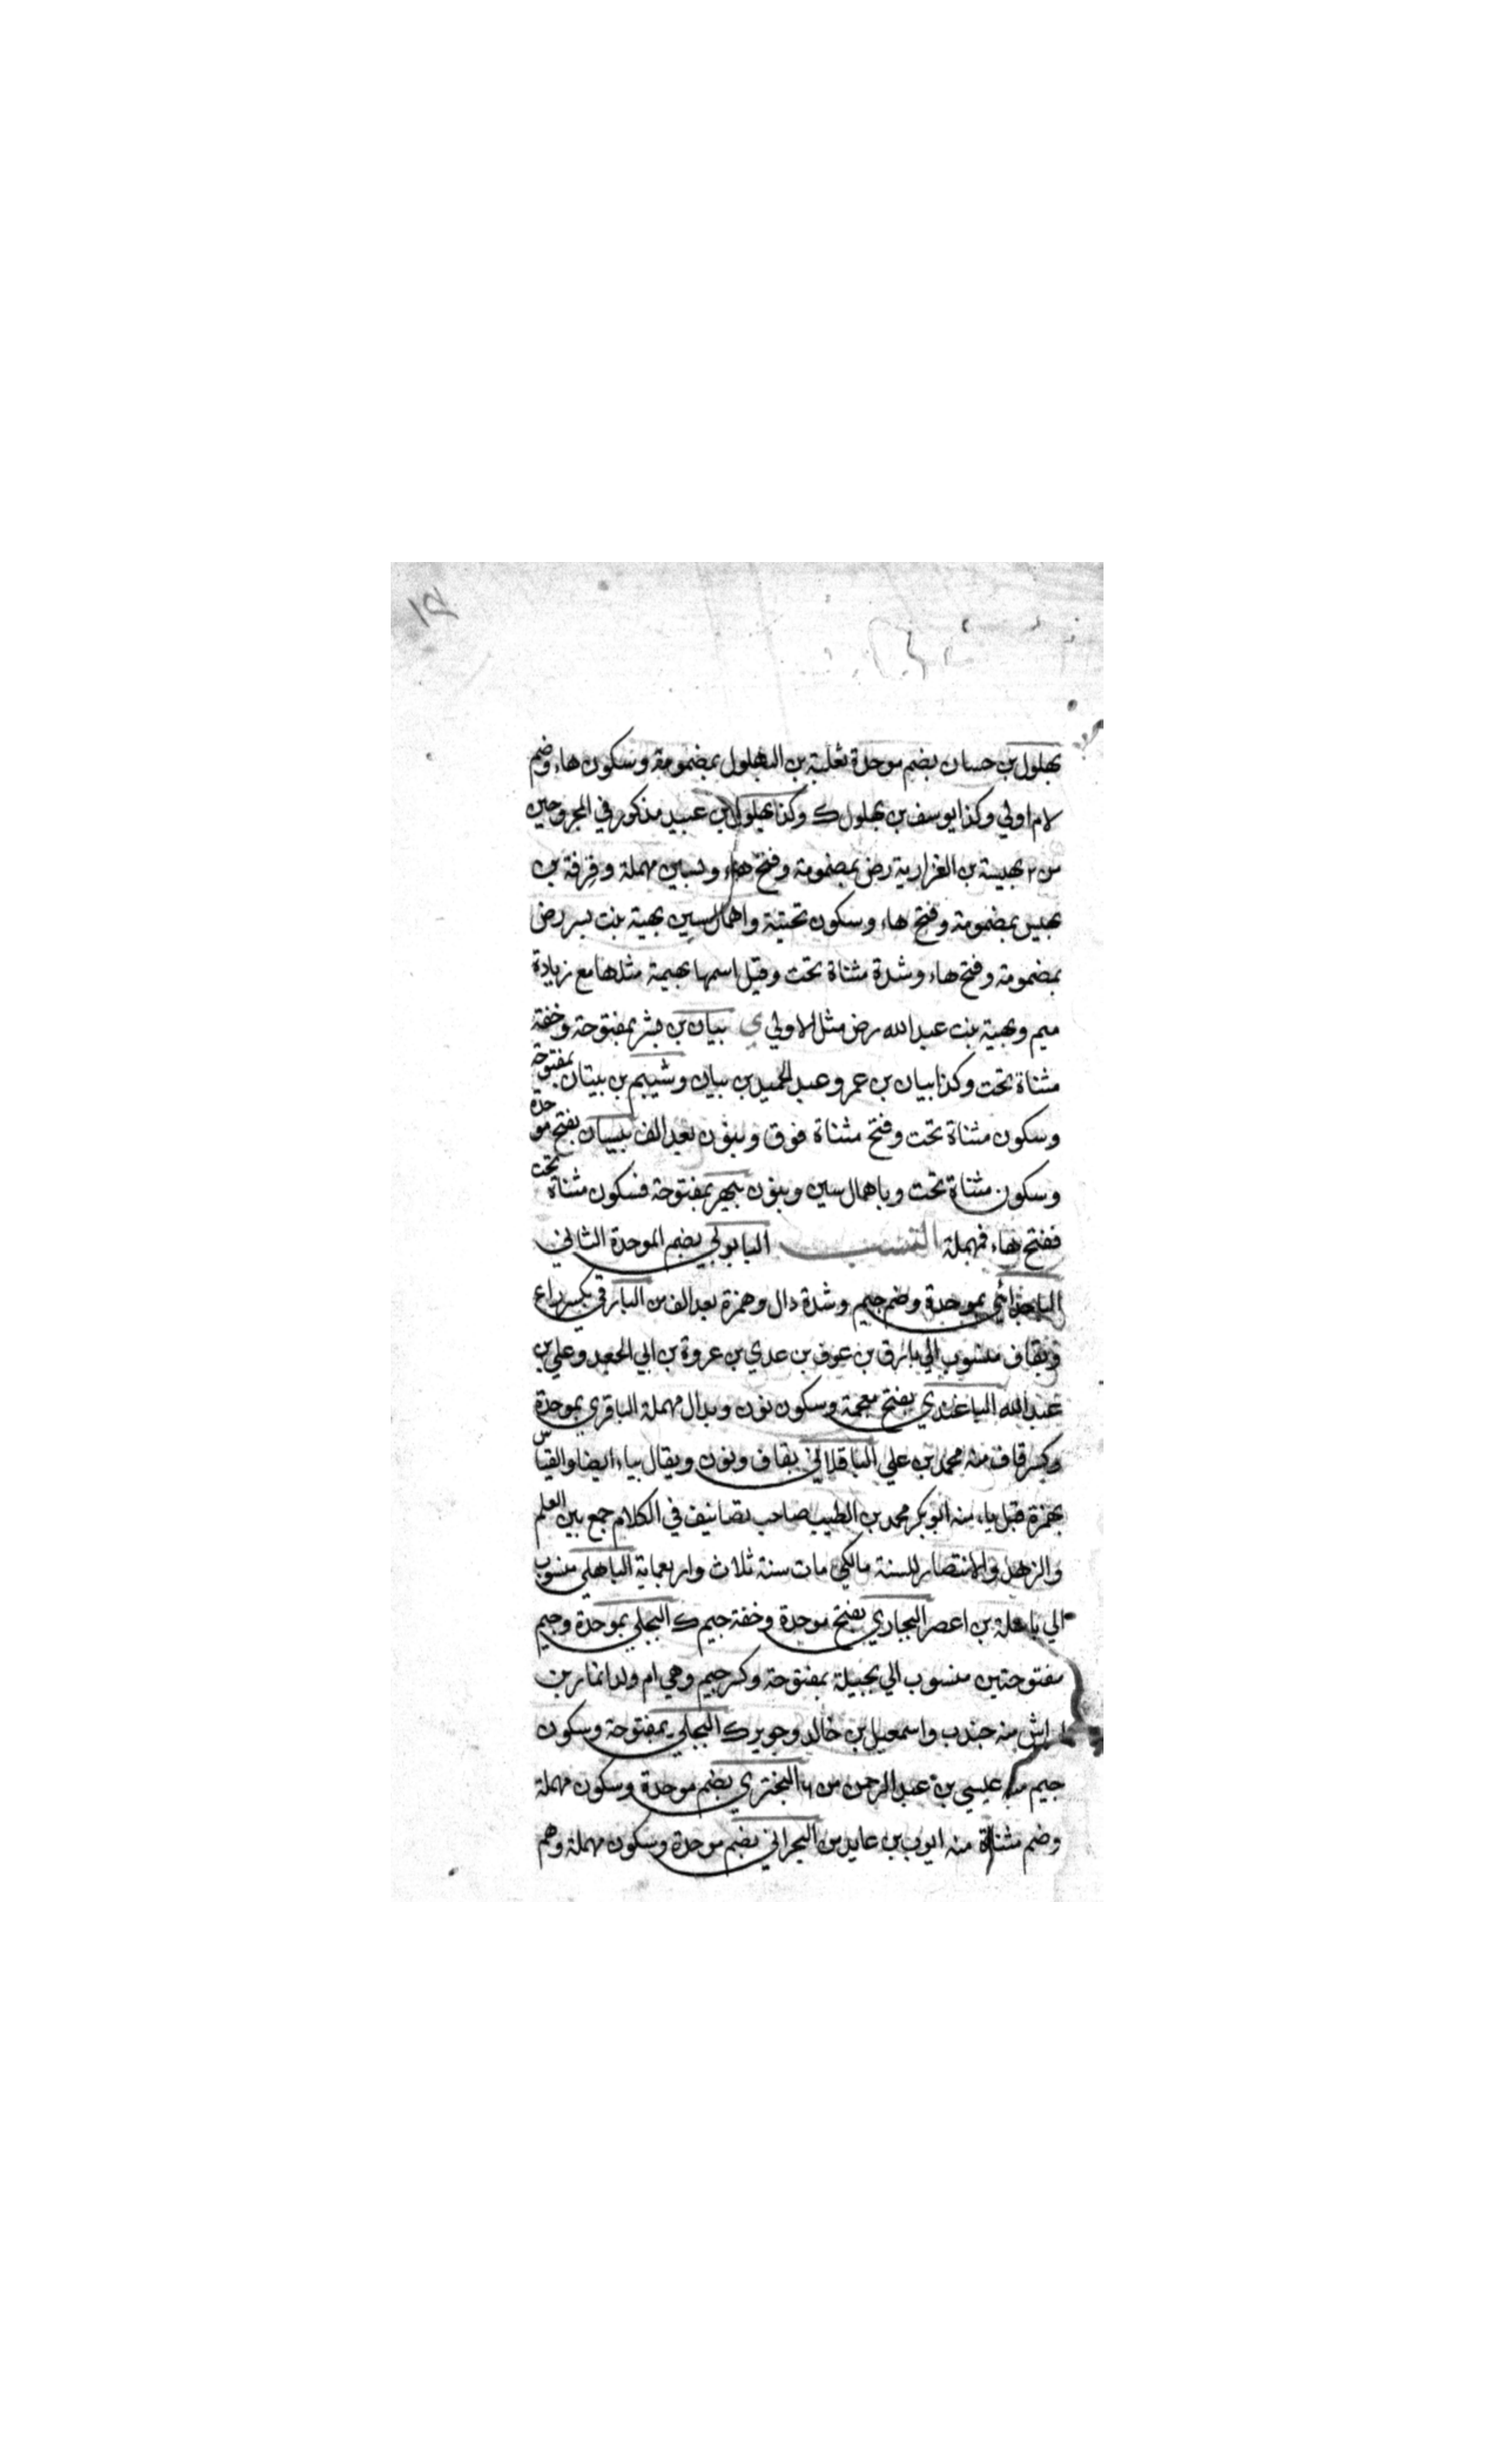 بهلول بن حسان بضم موحدة ثعلبة بن البهلول بمضمومة وسكون هاء وضم
لام اولي وكذا يوسف بن بهلول ك وكذا بهلول بن عبيد مذكور في المجروحين
بهيسة بن الفزارية رض بمضمومة وفتح هاء وبسين مهملة وقرفة بن
بهيس بمضمومة وفتح هاء وسكون تحتية واهمال سين بهية بنت بسر رض
بمضمومة وفتح هاء وشدة مثناة تحت وقيل اسمها بهيمة مثلها مع زيادة
ميم وبهية بنت عبد الله رض مثل الاولي ي بيان بن بشر بمفتوحة وخفة
مثناة تحت وكذا بيان بن عمرو عبد الحميد بن بيان وشييم بن بيتان بمفتوحة
وسكون مثناة تحت وفتح مثناة فوق وبنون بعد الف بيسان بفتح موحدة
وسكون مثناة تحت وباهمال سين وبنون بيهر بمفتوحة فسكون مثناة تحت
ففتح هاء فمهملة النسب البابولي بضم الموحدة الثاني
الباجدائي بموحدة وضم جيم وشدة دال وهمزة بعد الف من البارقي بكسر راء
وبقاف منسوب الي بارق بن عوف بن عدي بن عروة بن ابي الجعد وعلي بن
عبد الله الباغندي بفتح معجمة وسكون نون وبدال مهملة الباقري بموحدة
وكسر قاف منه محمد بن علي الباقلاني بقاف ونون ويقال بياء ايضا والقياس
بهمزة قبل ياء منه ابو بكر محمد بن الطيب صاحب تصانيف في الكلام جمع بين العلم
والزهد والانتصار للسنة مالكي مات سنة ثلاث واربعماية الباهلي منسوب
الي باهلة بن اعصر البجاري بفتح موحدة وخفة جيم ك البجلي بموحدة وجيم
مفتوحتين منسوب الي بجيلة بمفتوحة وكسر جيم وهي ام ولد انمار بن
اراش منه جندب واسمعيل بن خالد وجرير ك البجلي بمفتوحة وسكون
جيم منه عيسي بن عبد الرحمن من البحتري بضم موحدة وسكون مهملة
وضم مثناة منه ايوب بن عايد من البحراني بضم موحدة وسكون مهملة وهم